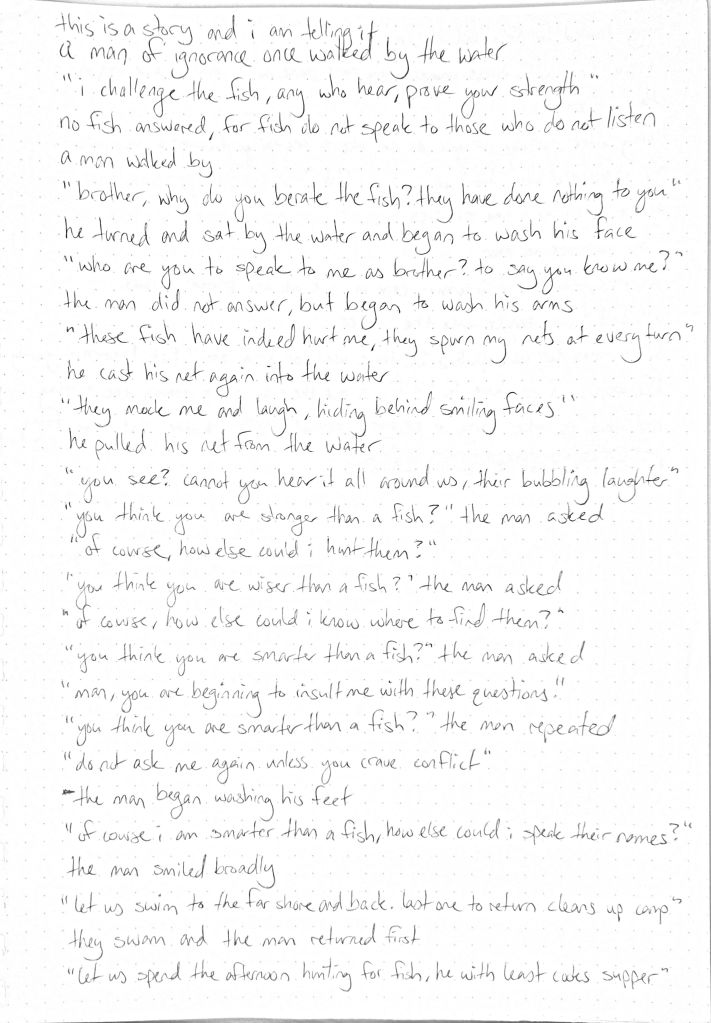 this is a story and i am telling it
a man of ignorance once walked by the water
"i challenge the fish, any who hear, prove your strength"
no fish answered, for fish do not speak to those who do not listen
a man walked by
"brother, why do you berate the fish? they have done nothing to you"
he turned and sat by the water and began to wash his face
"who are you to speak to me as brother? to say you know me?"
the man did not answer, but began to wash his arms
"these fish have indeed hurt me, they spurn my nets at every turn"
he cast his net again into the water
"they mock me and laugh, hiding behind smiling faces"
he pulled his net from the water
"you see? cannot you hear it all around us, their bubbling laughter"
"you think you are stronger than a fish?" the man asked
"of course, how else could i hunt them?"
"you think you are wiser than a fish?" the man asked
"of course, how else could i know where to find them?"
"you think you are smarter than a fish?" the man asked
"man, you are beginning to insult me with these questions!"
"you think you are smarter than a fish?" the man repeated
"do not ask me again unless you crave conflict"
the man began washing his feet
"of course i am smarter than a fish, how else could i speak their names?"
the man smiled broadly
"let us swim to the far shore and back. last one to return cleans up camp"
they swam and the man returned first
"let us spend the afternoon hunting for fish, he with least cooks supper"